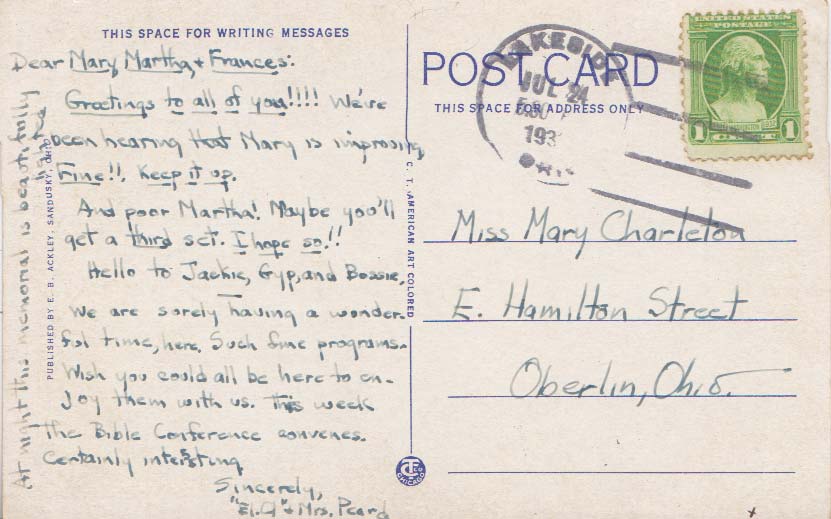 THIS SPACE FOR WRITING MESSAGES
Dear Mary, Martha, & Frances:
Greetings to all of you!!!! We're
been hearing that Mary is improving
Fine!!, Keep it up.
And poor Martha! Maybe you'll
get a third set. I hope so!!
Hello to Jackie, Gyp, and Bossie,
We are surely having a wonder-
ful time, here. Such fine programs.
Wish you could all be here to en-
joy them with us. This week
the Bible Conference convenes.
Certainly interesting
Sincerely,
& Mrs. Peard
At night this memorial is beautifully
lighted
PUBLISHED BY E. B. ACKLEY, SANDUSKY, OHIO
C. T. AMERICAN ART COLORED
CHICAGO
POST CARD
THIS SPACE FOR ADDRESS ONLY
LAKESIDE
JUL 24
193
UNITED STATES
POSTAGE
1 1
Miss Mary Charleton
E. Hamilton Street
Oberlin, Ohio.